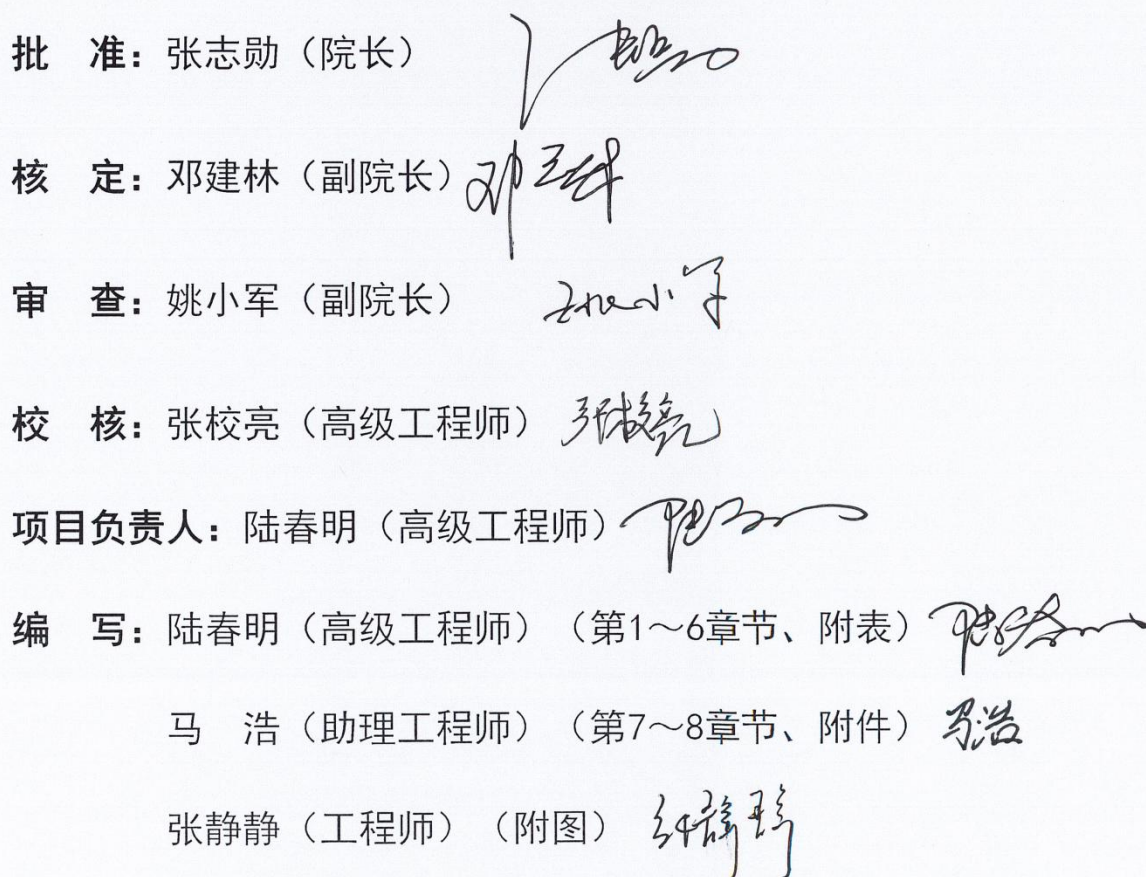 批　准：张志勋（院长）
核　定：邓建林（副院长）邓建林
审　查：姚小军（副院长）姚小军
校　核：张校亮（高级工程师）张校亮
项目负责人：陆春明（高级工程师）
编　写：陆春明（高级工程师）（第1～6章节、附表）陆春明
马　浩（助理工程师）（第7～8章节、附件）马浩
张静静（工程师）（附图）张静静